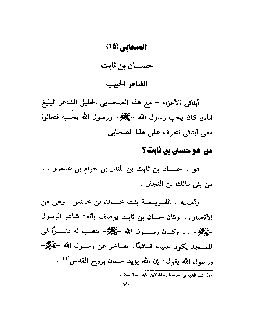 الصحابي (١٥)
حسان بن ثابت
الشاعر الحبيب
أبنائي الأعزاء - مع هذا الصحابي الجليل الشاعر البليغ
الذي كان يحب رسول الله -ﷺ- ورسول الله يحبه فتعالوا
معي أبنائي نتعرف على هذا الصحابي
من هو حسان بن ثابت؟
هو .. حسان بن ثابت بن المنذر بن حرام بن
من بني مالك بن النجار .
وأمه .. الفريعة بنت خالد بن وهي من
الأنصار .. وكان حسان بن ثابت يوصف بأنه: شاعر الرسول
-ﷺ- .. وكان رسول الله -ﷺ- ينصب له منبرًا في
المسجد يقوم عليه قائمًا، يفاخر عن رسول الله -ﷺ-
ورسول الله يقول: إن الله يؤيد حسان بروح القدس